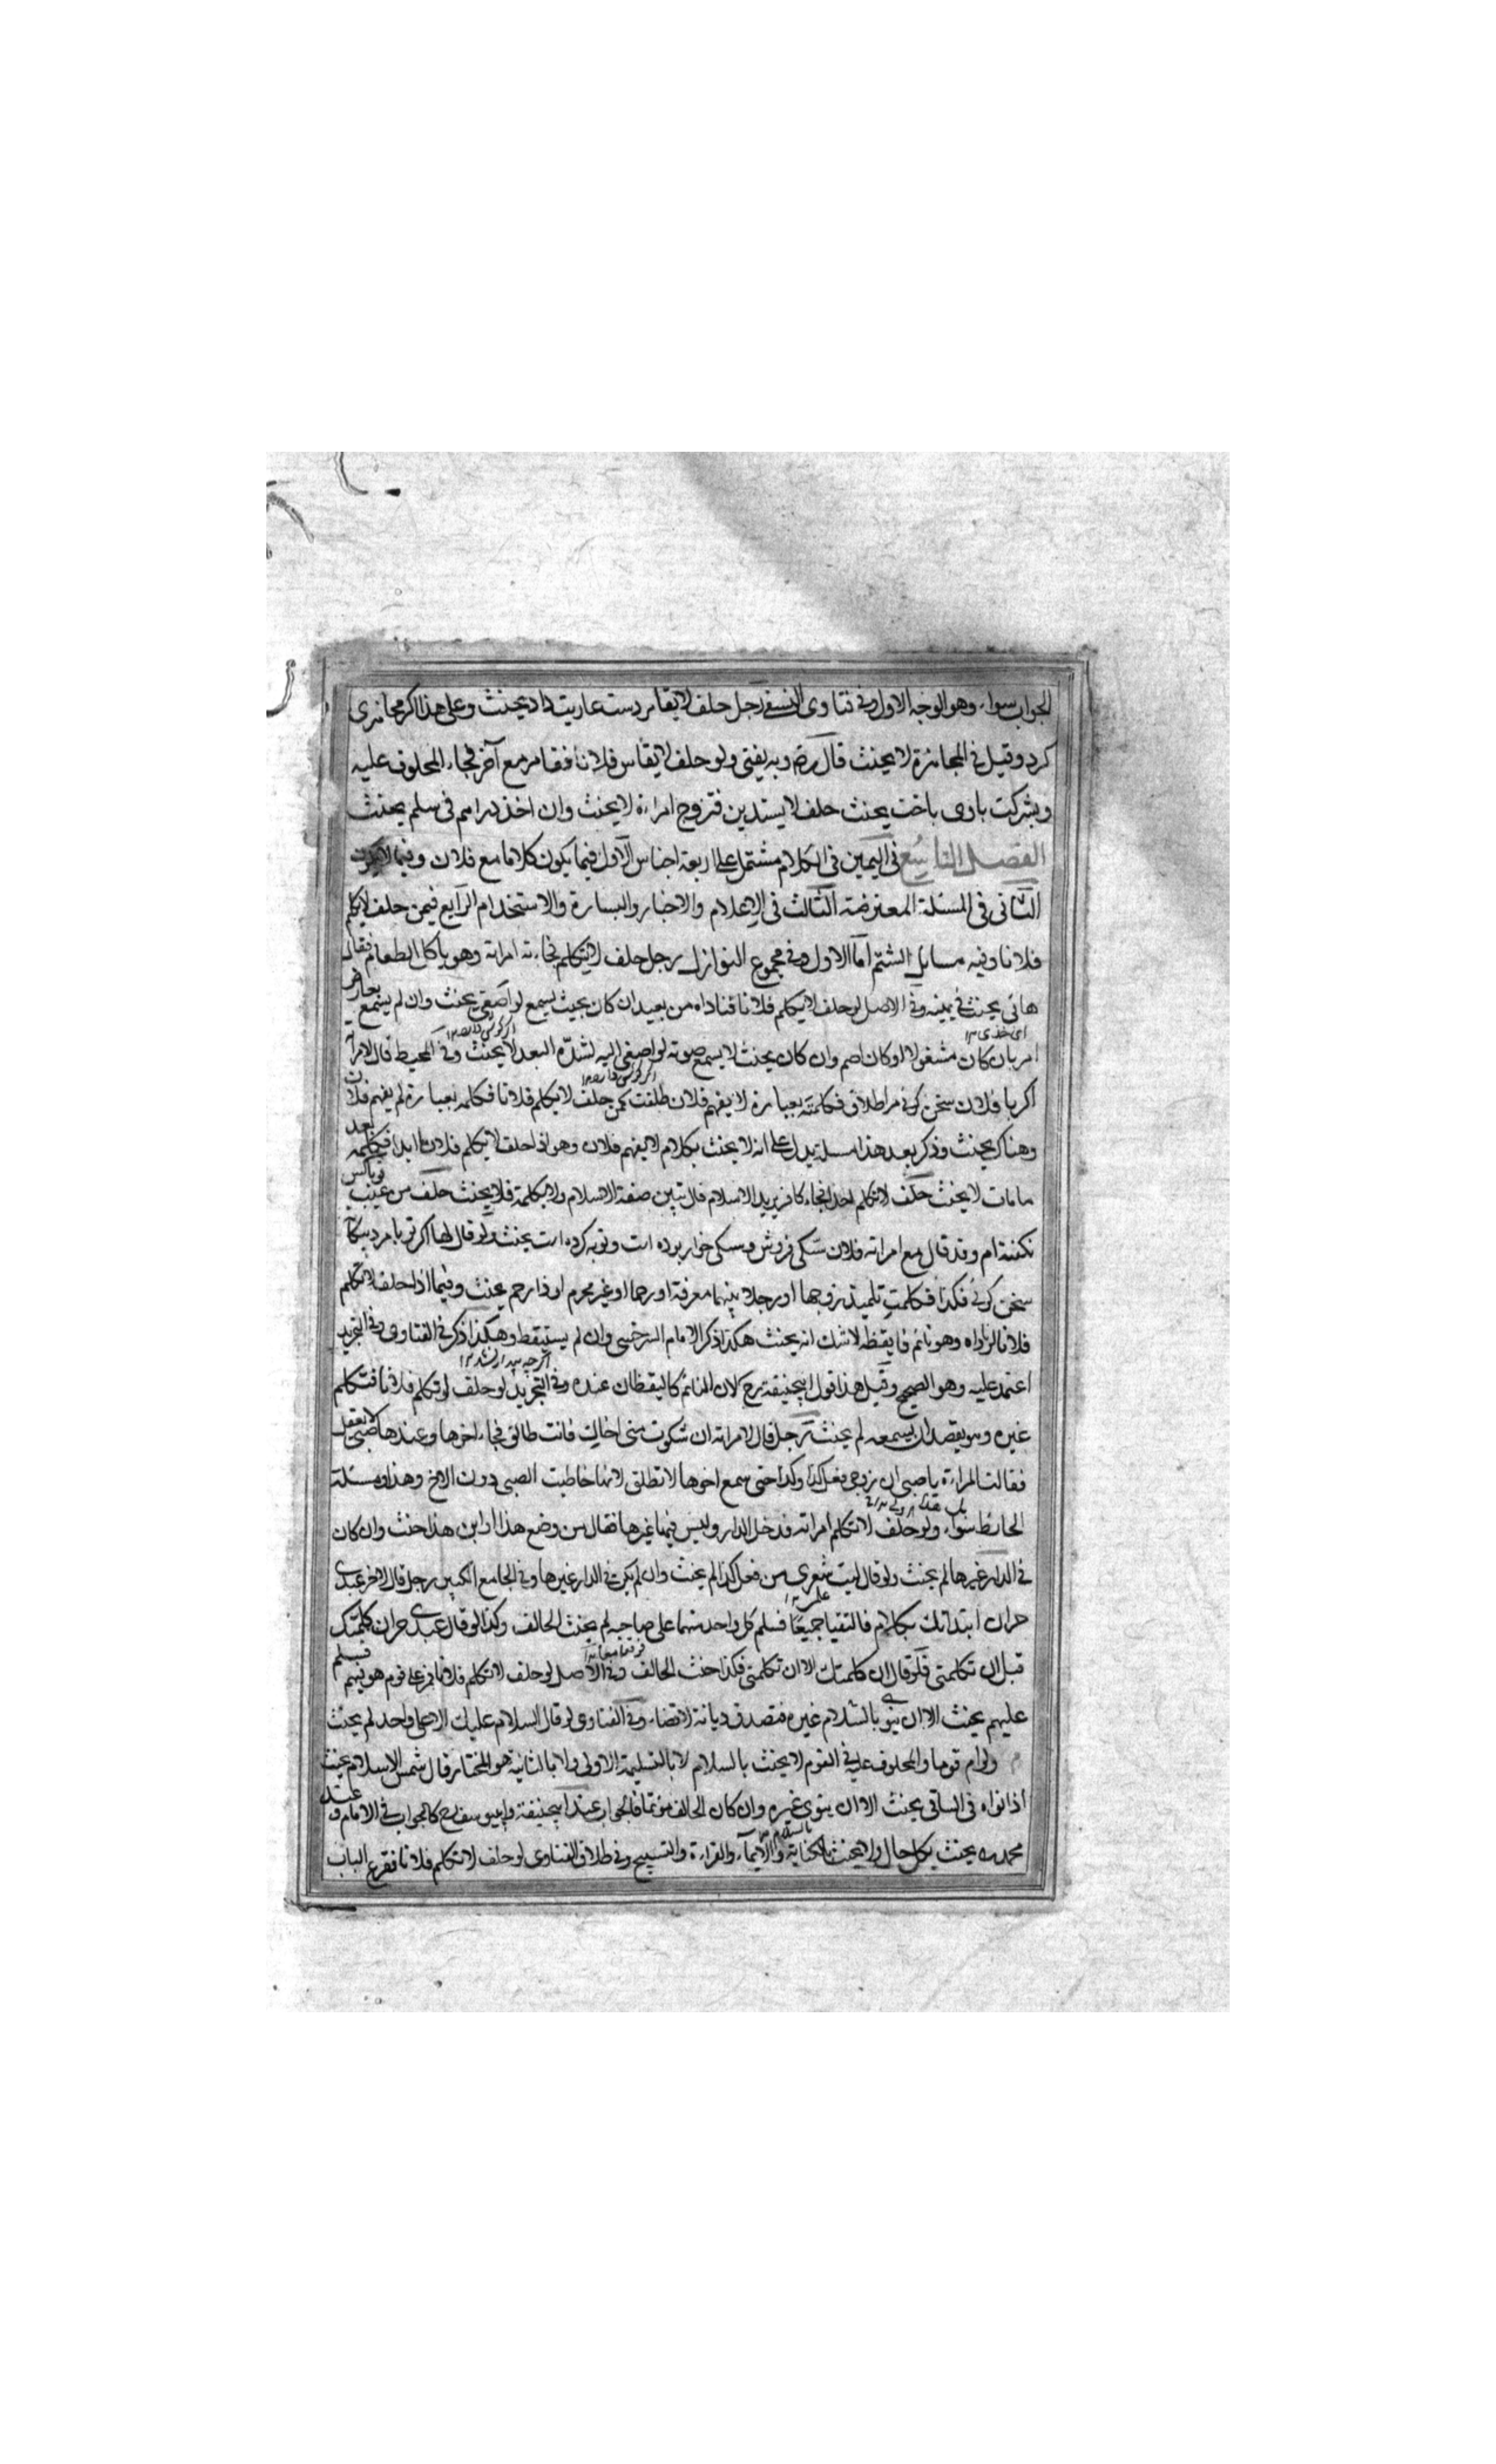 الجواب سواء وهو الوجه الاول وفي فتاوى النسفي رجل حلف لا يقامر دست عاريت داد يحنث وعلى هذا اكر مجاهزى
كرد وقيل في المجاهزة لا يحنث قال رض وبه يفتى ولو حلف لا يقامر فلانا فقامر مع آخر فجاء المحلوف عليه
وبشركت باوى باخت يحنث حلف لا يستدين فتزوج امراة لا يحنث وان اخذ دراهم في سلم يحنث
الفصل التاسع في اليمين في الكلام مشتمل على اربعة اجناس الاول فيما يكون كلاما مع فلان وفيما لا يكون
الثاني في المسئلة المعترضة الثالث في الاعلام والاخبار والبسارة والاستخدام الرابع فيمن حلف لا يكلم
فلانا وفيه مسايل الشتم اما الاول وفي مجموع النوازل رجل حلف لا يتكلم فجاءته امراته وهو ياكل الطعام فقال
هائى يحنث في يمينه وفي الاصل لو حلف لا يكلم فلانا فناداه من بعيد ان كان بحيث يسمع لو اصغى يحنث وان لم يسمع بعارض
اى خذى ١٢
امر بان كان مشغولا او كان اصم وان كان بحيث لا يسمع صوته لو اصغى اليه لشدة البعد لا يحنث وفي المحيط قال لامراته
اكر با فلان سخن كوئى مرا طلاق فكلمته بعبارة لا يفهم فلان طلقت كمن حلف لا يكلم فلانا فكلمه بعبارة لم يفهم فلان
وهناك يحنث وذكر بعد هذا مسئلة يدل على انه لا يحنث بكلام لا يفهم فلان وهو اذا حلف لا يكلم فلانا ابدا فكلمه بعد
ما مات لا يحنث حلف لا يتكلم احدا فجاء كافر يريد الاسلام قال تبين صفة الاسلام ولا يكلمه فلا يحنث حلف من غيبت توباكس
نكننه ام وقد قال مع امراته فلان سكى فروش وسكى خوار بوده است وتوبه كرده است يحنث ولو قال لها اكر تو با مرد بيكانه
سخن كوئى فكذا فكلمت تلميذ زوجها او رجلا بينهما معرفة او رحما او غير محرم او ذا رحم يحنث وفيما اذا حلف لا يتكلم
فلانا لو ناداه وهو نائم فايقظه لا شك انه يحنث هكذا ذكر الامام السرخسى وان لم يستيقظ وهكذا ذكر في الفتاوى وفي التجريد
اكرچه بيدار نشد ١٢
اعتمد عليه وهو الصحيح وقيل هذا قول ابيحنيفة رح لان النائم كاليقظان عنده وفي التجريد لو حلف لا يكلم فلانا فتكلم
غيره وهو يقصد ان يسمعه لم يحنث رجل قال لامراته ان شكوت منى اخاك فانت طالق فجاء اخوها وعندها صبى لا يعقل
فقالت المراءة يا صبى ان زوجى فعل كذا وكذا حتى سمع اخوها لا تطلق لانها خاطبت الصبى دون الاخ وهذا ومسئلة
الحائط سواء ولو حلف لا تكلم امراته فدخل الدار وليس فيها غيرها فقال من وضع هذا او اين هذا حنث وان كان
في الدار غيرها لم يحنث ولو قال ليت شعرى من فعل كذا لم يحنث وان لم يكن في الدار غيرها وفي الجامع الكبير رجل قال لاخر عبدى
حران ابتداتك بكلام فالتقيا جميعا فسلم كل واحد منهما على صاحبه لم يحنث الحالف وكذا لو قال عبدى حران كلمتك
قبل ان تكلمنى فلو قال ان كلمتك الا ان تكلمنى فكذا حنث الحالف وفي الاصل لو حلف لا يتكلم فلانا فمر على قوم هو فيهم فسلم
عليهم يحنث الا ان ينوى بالسلام غيره فتصدق ديانة لا قضاء وفي الفتاوى لو قال السلام عليك الا على واحد لم يحنث
ولو ام قوما والمحلوف عليه في القوم لا يحنث بالسلام لا بالتسليمة الاولى ولا بالثانية هو المختار قال شمس الاسلام يحنث
اذا نواه في الساقى يحنث الا ان ينوى غيره وان كان الحالف مؤتما فالجواب عند ابيحنيفة وابيوسف رح كالجواب في الامام وعند
محمد ره يحنث بكل حال ولا يحنث بالكناية والايماء والقراءة والتسبيح وفي طلاق الفتاوى لو حلف لا يتكلم فلانا فقرع الباب